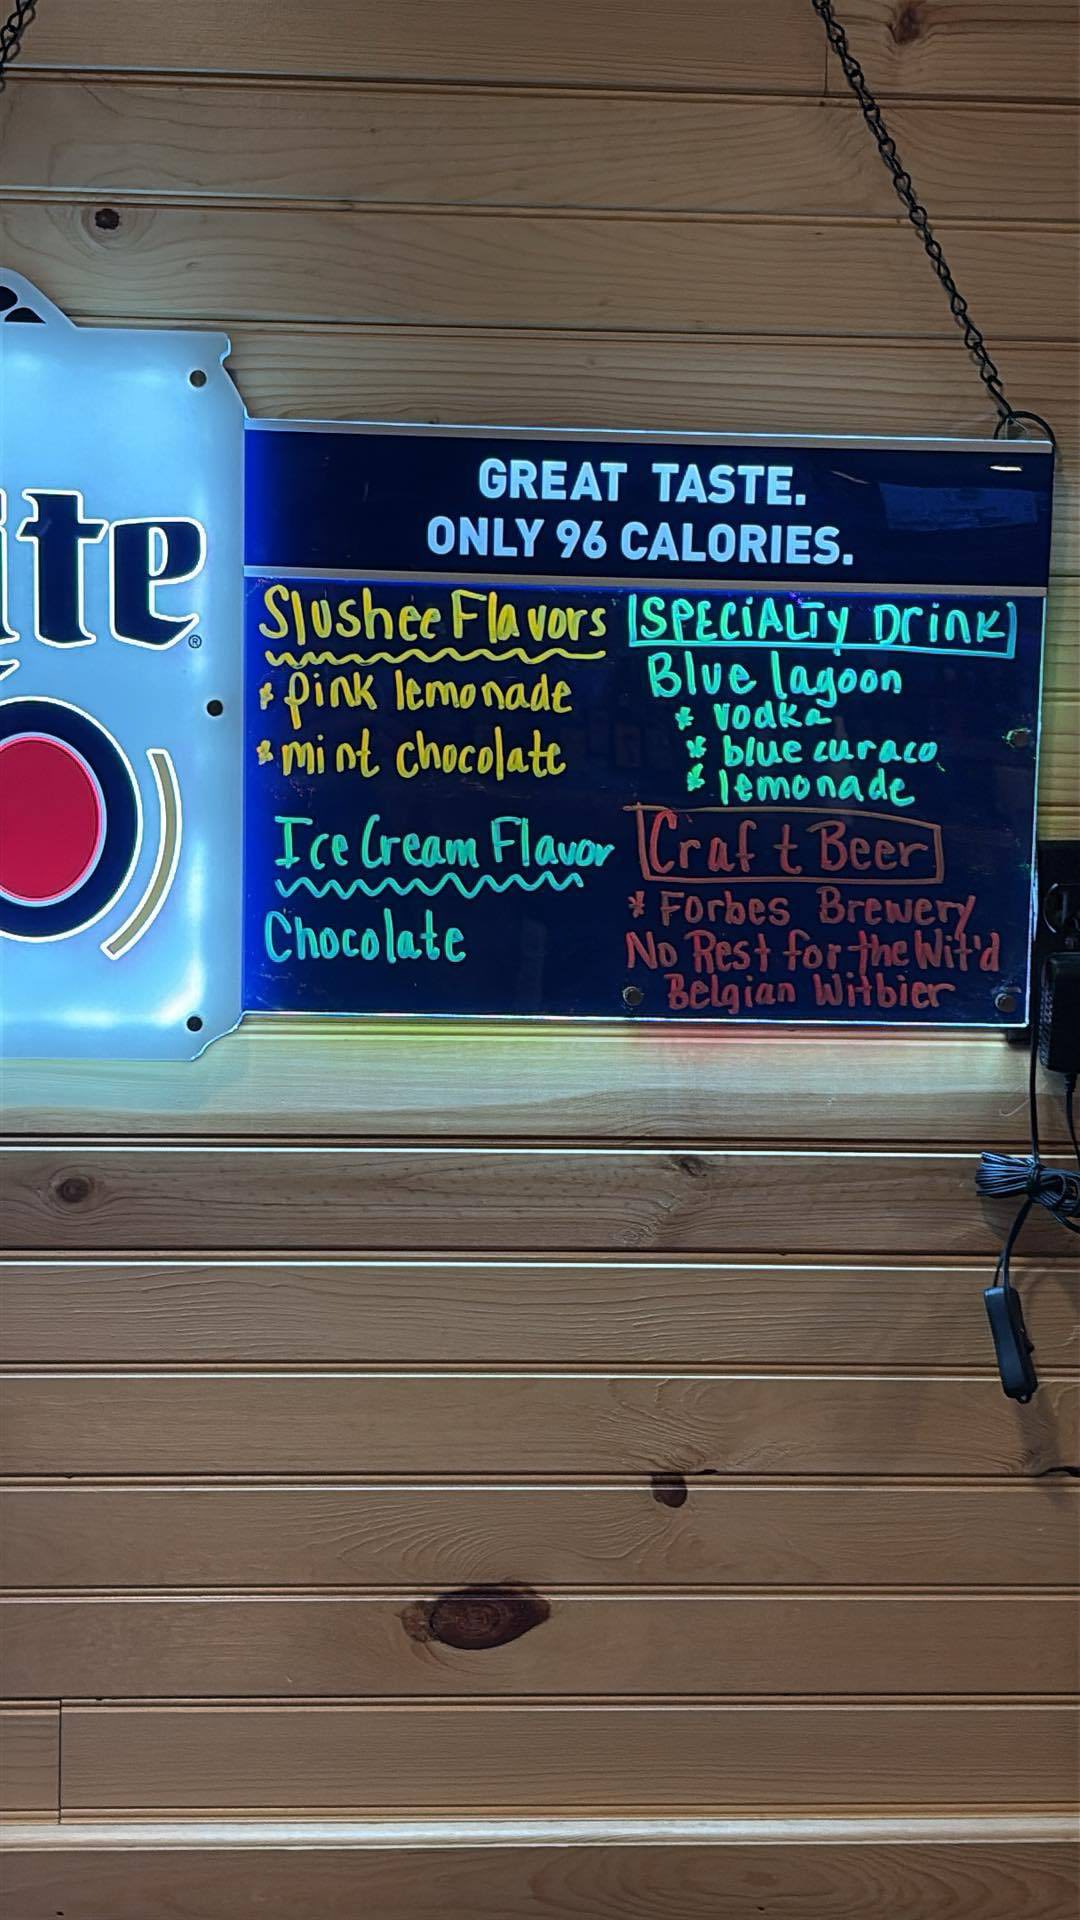 ite®
GREAT TASTE.
ONLY 96 CALORIES.
Slushee Flavors
* pink lemonade
* mint chocolate
Ice Cream Flavor
Chocolate
SPECiALTy DrinK
Blue lagoon
* vodka
* blue curaco
* lemonade
Craft Beer
* Forbes Brewery
No Rest for the Wit'd
Belgian Witbier